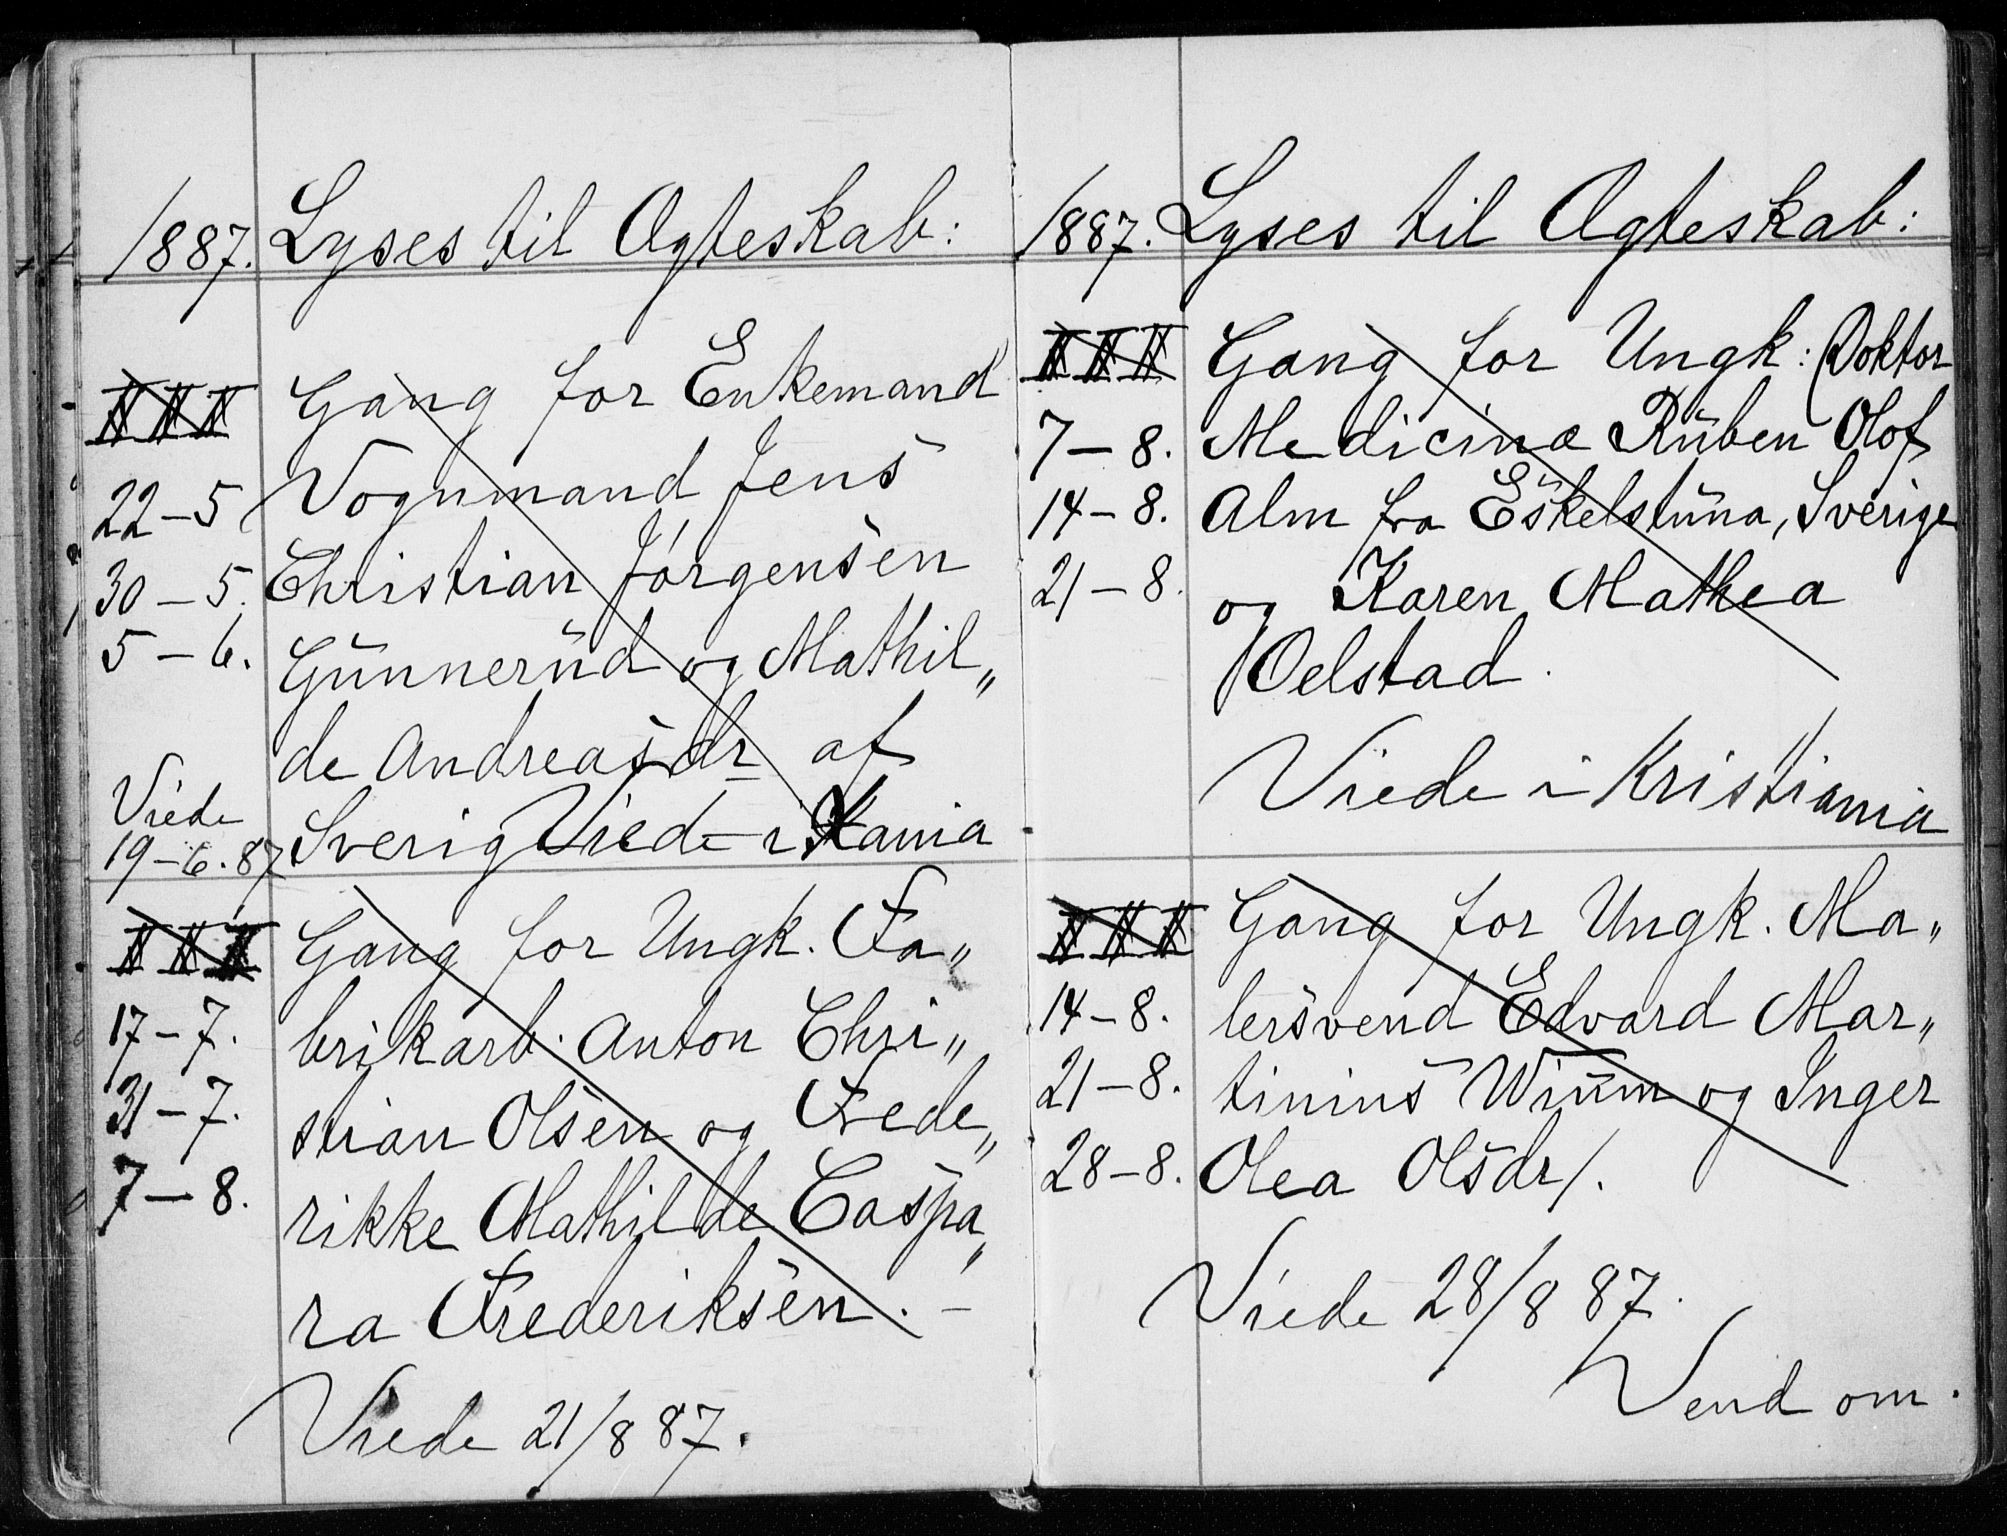 1887. Lyses til Ægteskab:
I II III Gang for Enkemand
22-5 Vognmand Jens
30-5. Christian Jørgensen
5-6. Gunnerud og Mathil„
de Andreasdr af
Viede
19-6.87 Sverig Viede i Kania
I II III Gang for Ungk. Fa„
17-7. brikarb. Anton Chri„
31-7. stian Olsen og Frede„
7-8. rikke Mathilde Caspa„
ra Frederiksen. -
Viede 21/8 87.
1887. Lyses til Ægteskab:
I II III Gang for Ungk: Doktor
7-8. Medicinæ Ruben Olof
14-8. Alm fra Eskelstuna, Sverige
21-8. og Karen Mathea
Oelstad.
Viede i Kristiania
I II III Gang for Ungk. Ma„
14-8. lersvend Edvard Mar„
21-8. tinius Wium og Inger
28-8. Olea Olsdr/.
Viede 28/8 87.
Vend om.